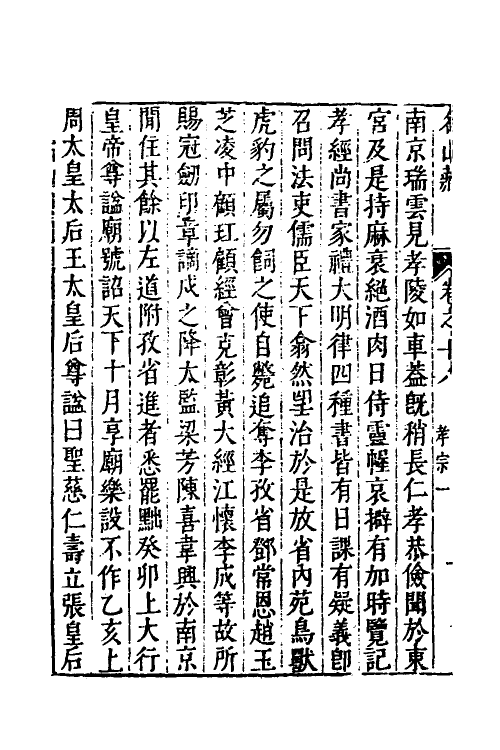 卷之十八 孝宗一
南京瑞雲見孝陵如車葢旣稍長仁孝恭儉聞於東
宮及是持麻衰絕酒肉日侍靈幄哀擗有加時覽記
孝經尚書家禮大明律四種書皆有日課有疑義卽
召問法吏儒臣天下翕然望治於是放省內苑鳥獸
虎豹之屬勿飼之使自斃追奪李孜省鄧常恩趙玉
芝凌中顧玒顧經曾克彰黃大經江懷李成等故所
賜冠劒印章謫戍之降太監梁芳陳喜韋興於南京
閒住其餘以左道附孜省進者悉罷黜癸卯上大行
皇帝尊諡廟號詔天下十月享廟樂設不作乙亥上
周太皇太后王太皇后尊諡曰聖慈仁壽立張皇后